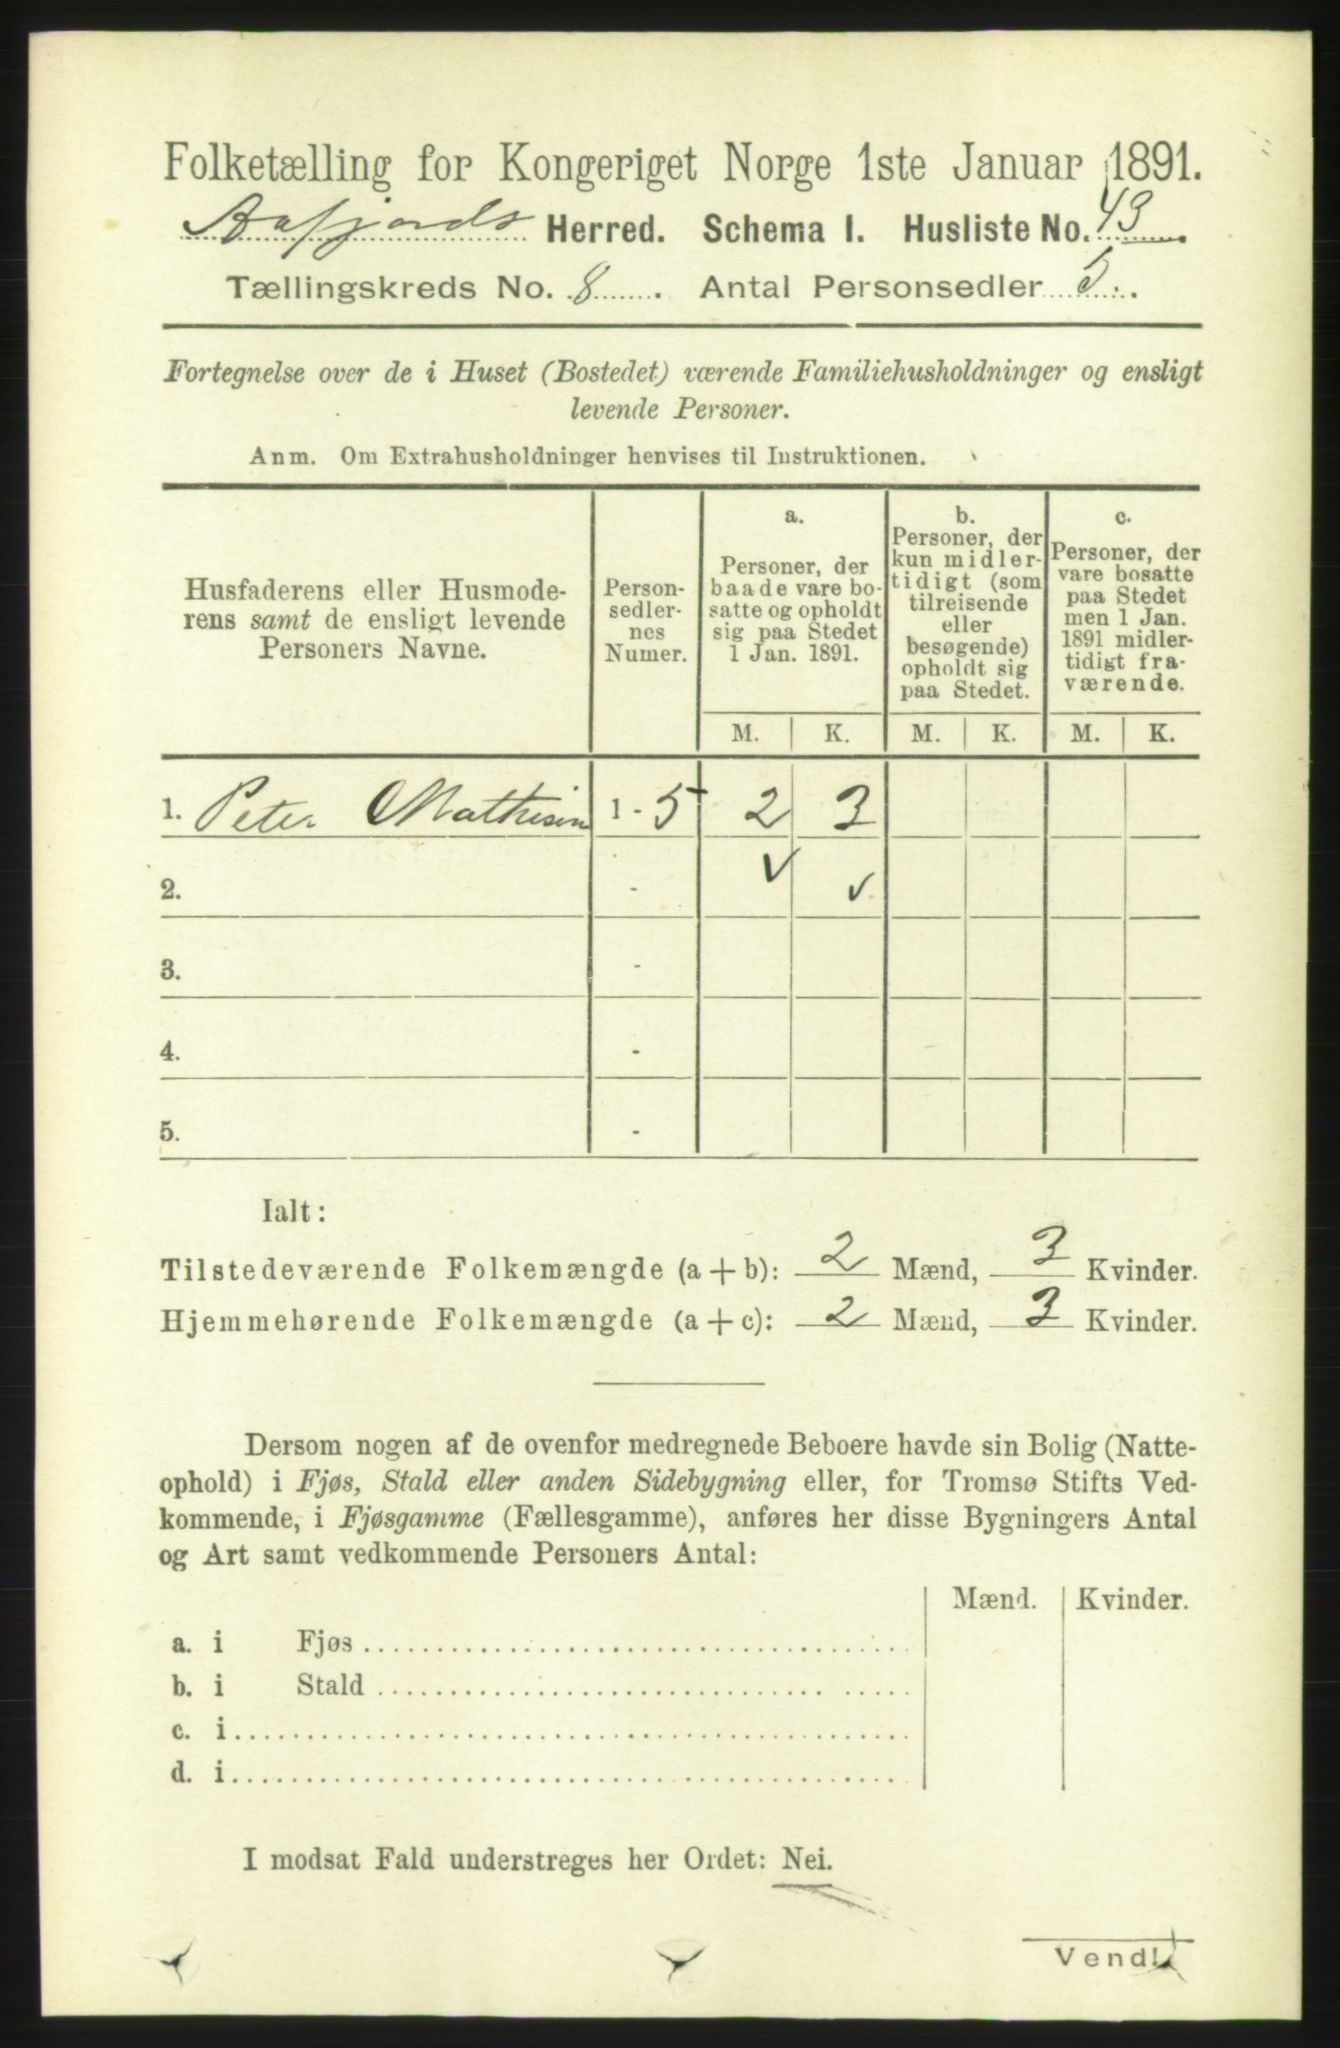 Folketælling for Kongeriget Norge 1ste Januar 1891.
Aafjords Herred. Schema I. Husliste No. 43.
Tællingskreds No. 8. Antal Personsedler 5.
Fortegnelse over de i Huset (Bostedet) værende Familiehusholdninger og ensligt
levende Personer.
Anm. Om Extrahusholdninger henvises til Instruktionen.
Husfaderens eller Husmode-
rens samt de ensligt levende
Personers Navne.
Person-
sedler-
nes
Numer.
a.
Personer, der
baade vare bo-
satte og opholdt
sig paa Stedet
1 Jan. 1891.
b.
Personer, der
kun midler-
tidigt (som
tilreisende
eller
besøgende)
opholdt sig
paa Stedet.
c.
Personer, der
vare bosatte
paa Stedet
men 1 Jan.
1891 midler-
tidigt fra-
værende.
M. K. M. K. M. K.
1. Peter Mathisen 1 - 5 2 3
2. - v v
3. -
4. -
5. -
Ialt:
Tilstedeværende Folkemængde (a + b): 2 Mænd, 3 Kvinder.
Hjemmehørende Folkemængde (a + c): 2 Mænd, 3 Kvinder.
Dersom nogen af de ovenfor medregnede Beboere havde sin Bolig (Natte-
ophold) i Fjøs, Stald eller anden Sidebygning eller, for Tromsø Stifts Ved-
kommende, i Fjøsgamme (Fællesgamme), anføres her disse Bygningers Antal
og Art samt vedkommende Personers Antal:
Mænd. Kvinder.
a. i Fjøs
b. i Stald
c. i
d. i
I modsat Fald understreges her Ordet: Nei.
Vend!